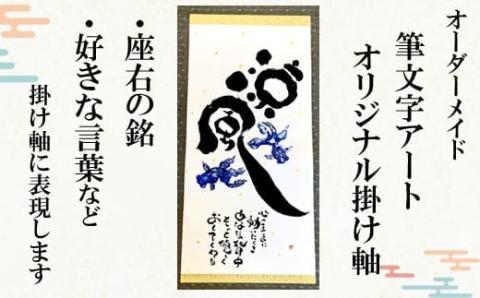 オーダーメイド
筆文字アート
オリジナル掛け軸
涼風
心のままに
・座右の銘
・好きな言葉など
掛け軸に表現します